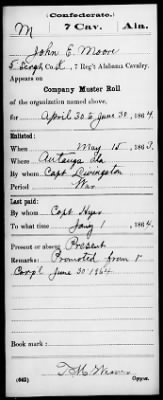 (Confederate.)
M 7 Cav. Ala.
John E. Moore
5 Sergt, Co. K, 7 Reg't Alabama Cavalry.
Appears on
Company Muster Roll
of the organization named above,
for April 30 to June 30, 1864.
Enlisted:
When May 15, 1863.
Where Autauga
By whom Capt Livingston
Period War
Last paid:
By whom Capt
To what time Jany 1, 1864.
Present or absent Present
Remarks: Promoted from
Corpl June 30 1864
Book mark:
(642) Copyist.